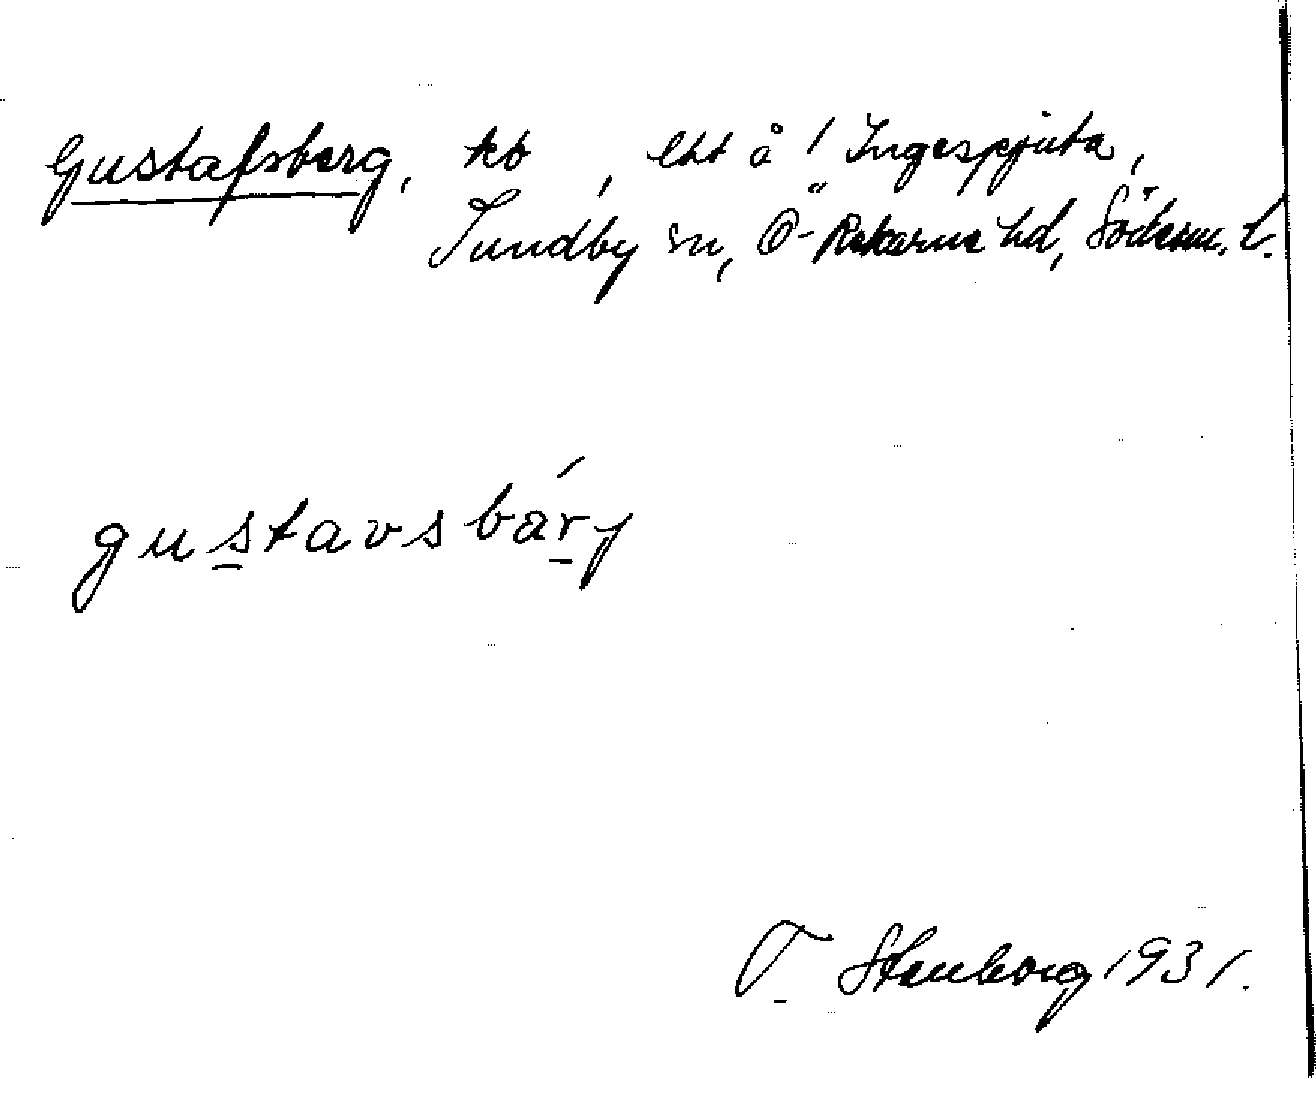 Gustafsberg, tcb, lht å 1 Ingesgjuta,
Sundby sn, Ö-Rekarne hd, Söderm. l.
gustavsbárj
T. Stenborg 1931.